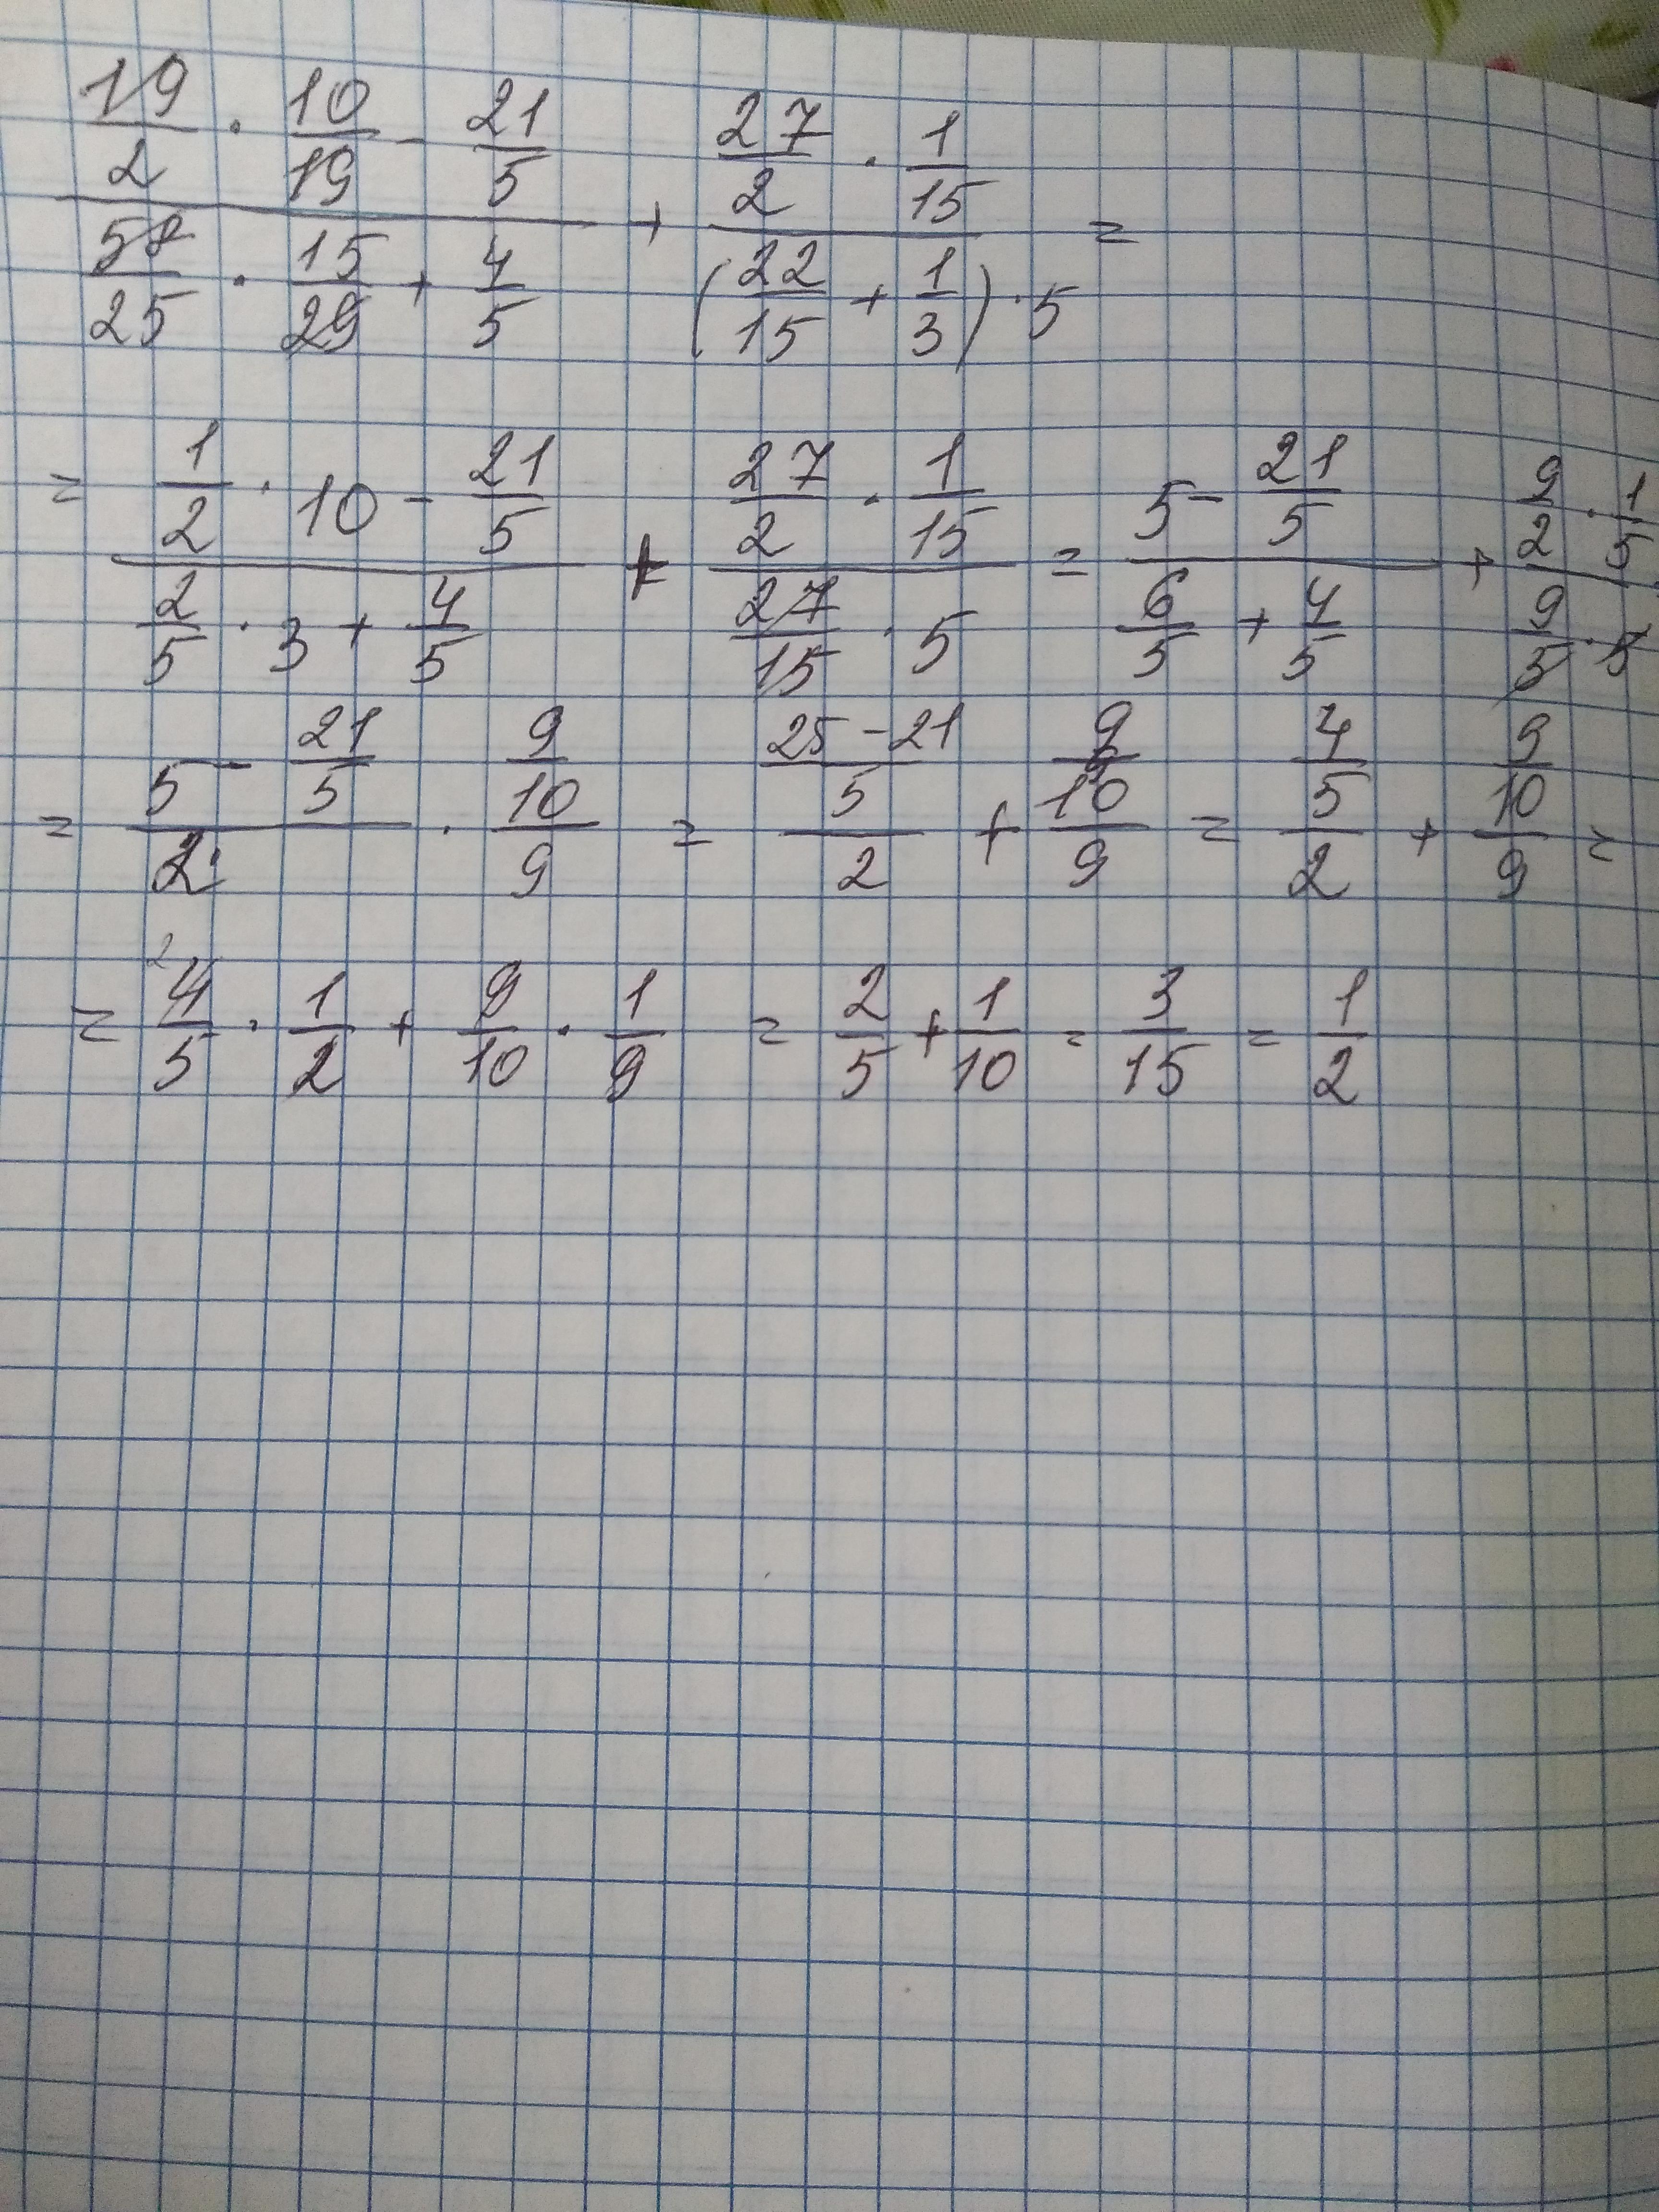 19/2 · 10/19 - 21/5 / 58/25 · 15/29 + 4/5 + 27/2 · 1/15 / (22/15 + 1/3) · 5 =
= 1/2 · 10 - 21/5 / 2/5 · 3 + 4/5 + 27/2 · 1/15 / 27/15 · 5 = 5 - 21/5 / 6/5 + 4/5 + 9/2 · 1/5 / 9/5 · 5
= 5 - 21/5 / 2 · 9/10 / 9 = 25 - 21/5 / 2 + 9/10 / 9 = 4/5 / 2 + 9/10 / 9 =
= 2 4/5 · 1/2 + 9/10 · 1/9 = 2/5 + 1/10 = 3/15 = 1/2